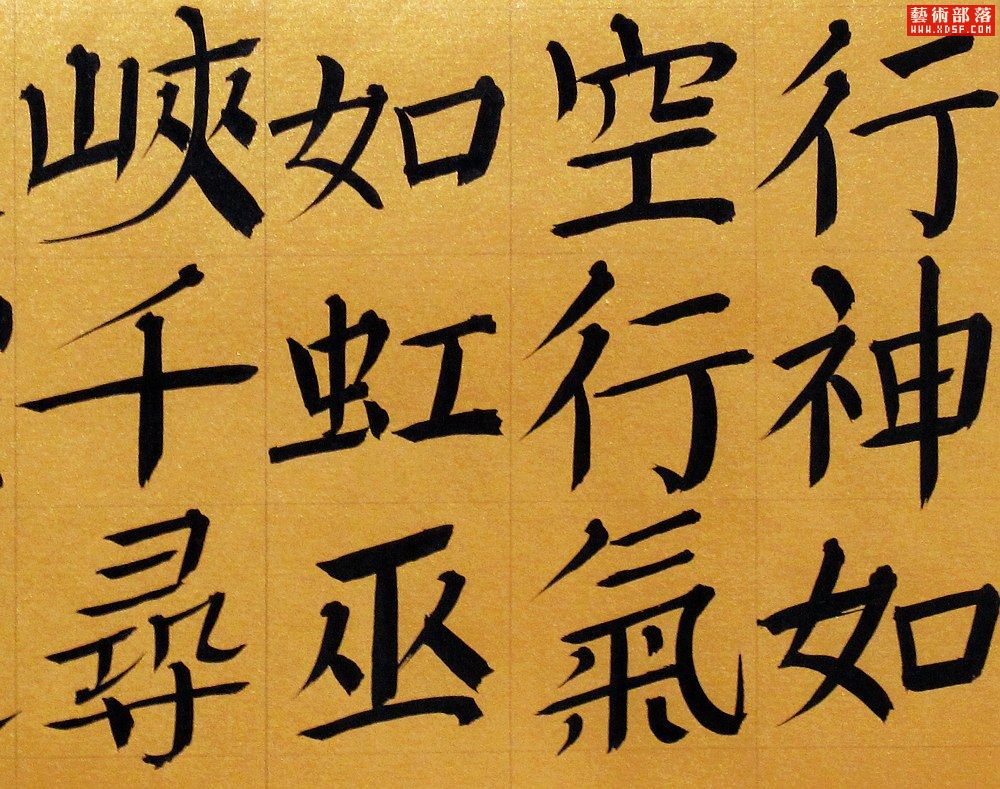 行神如
空行氣
如虹巫
峽千尋
藝術部落
WWW.XDSF.COM